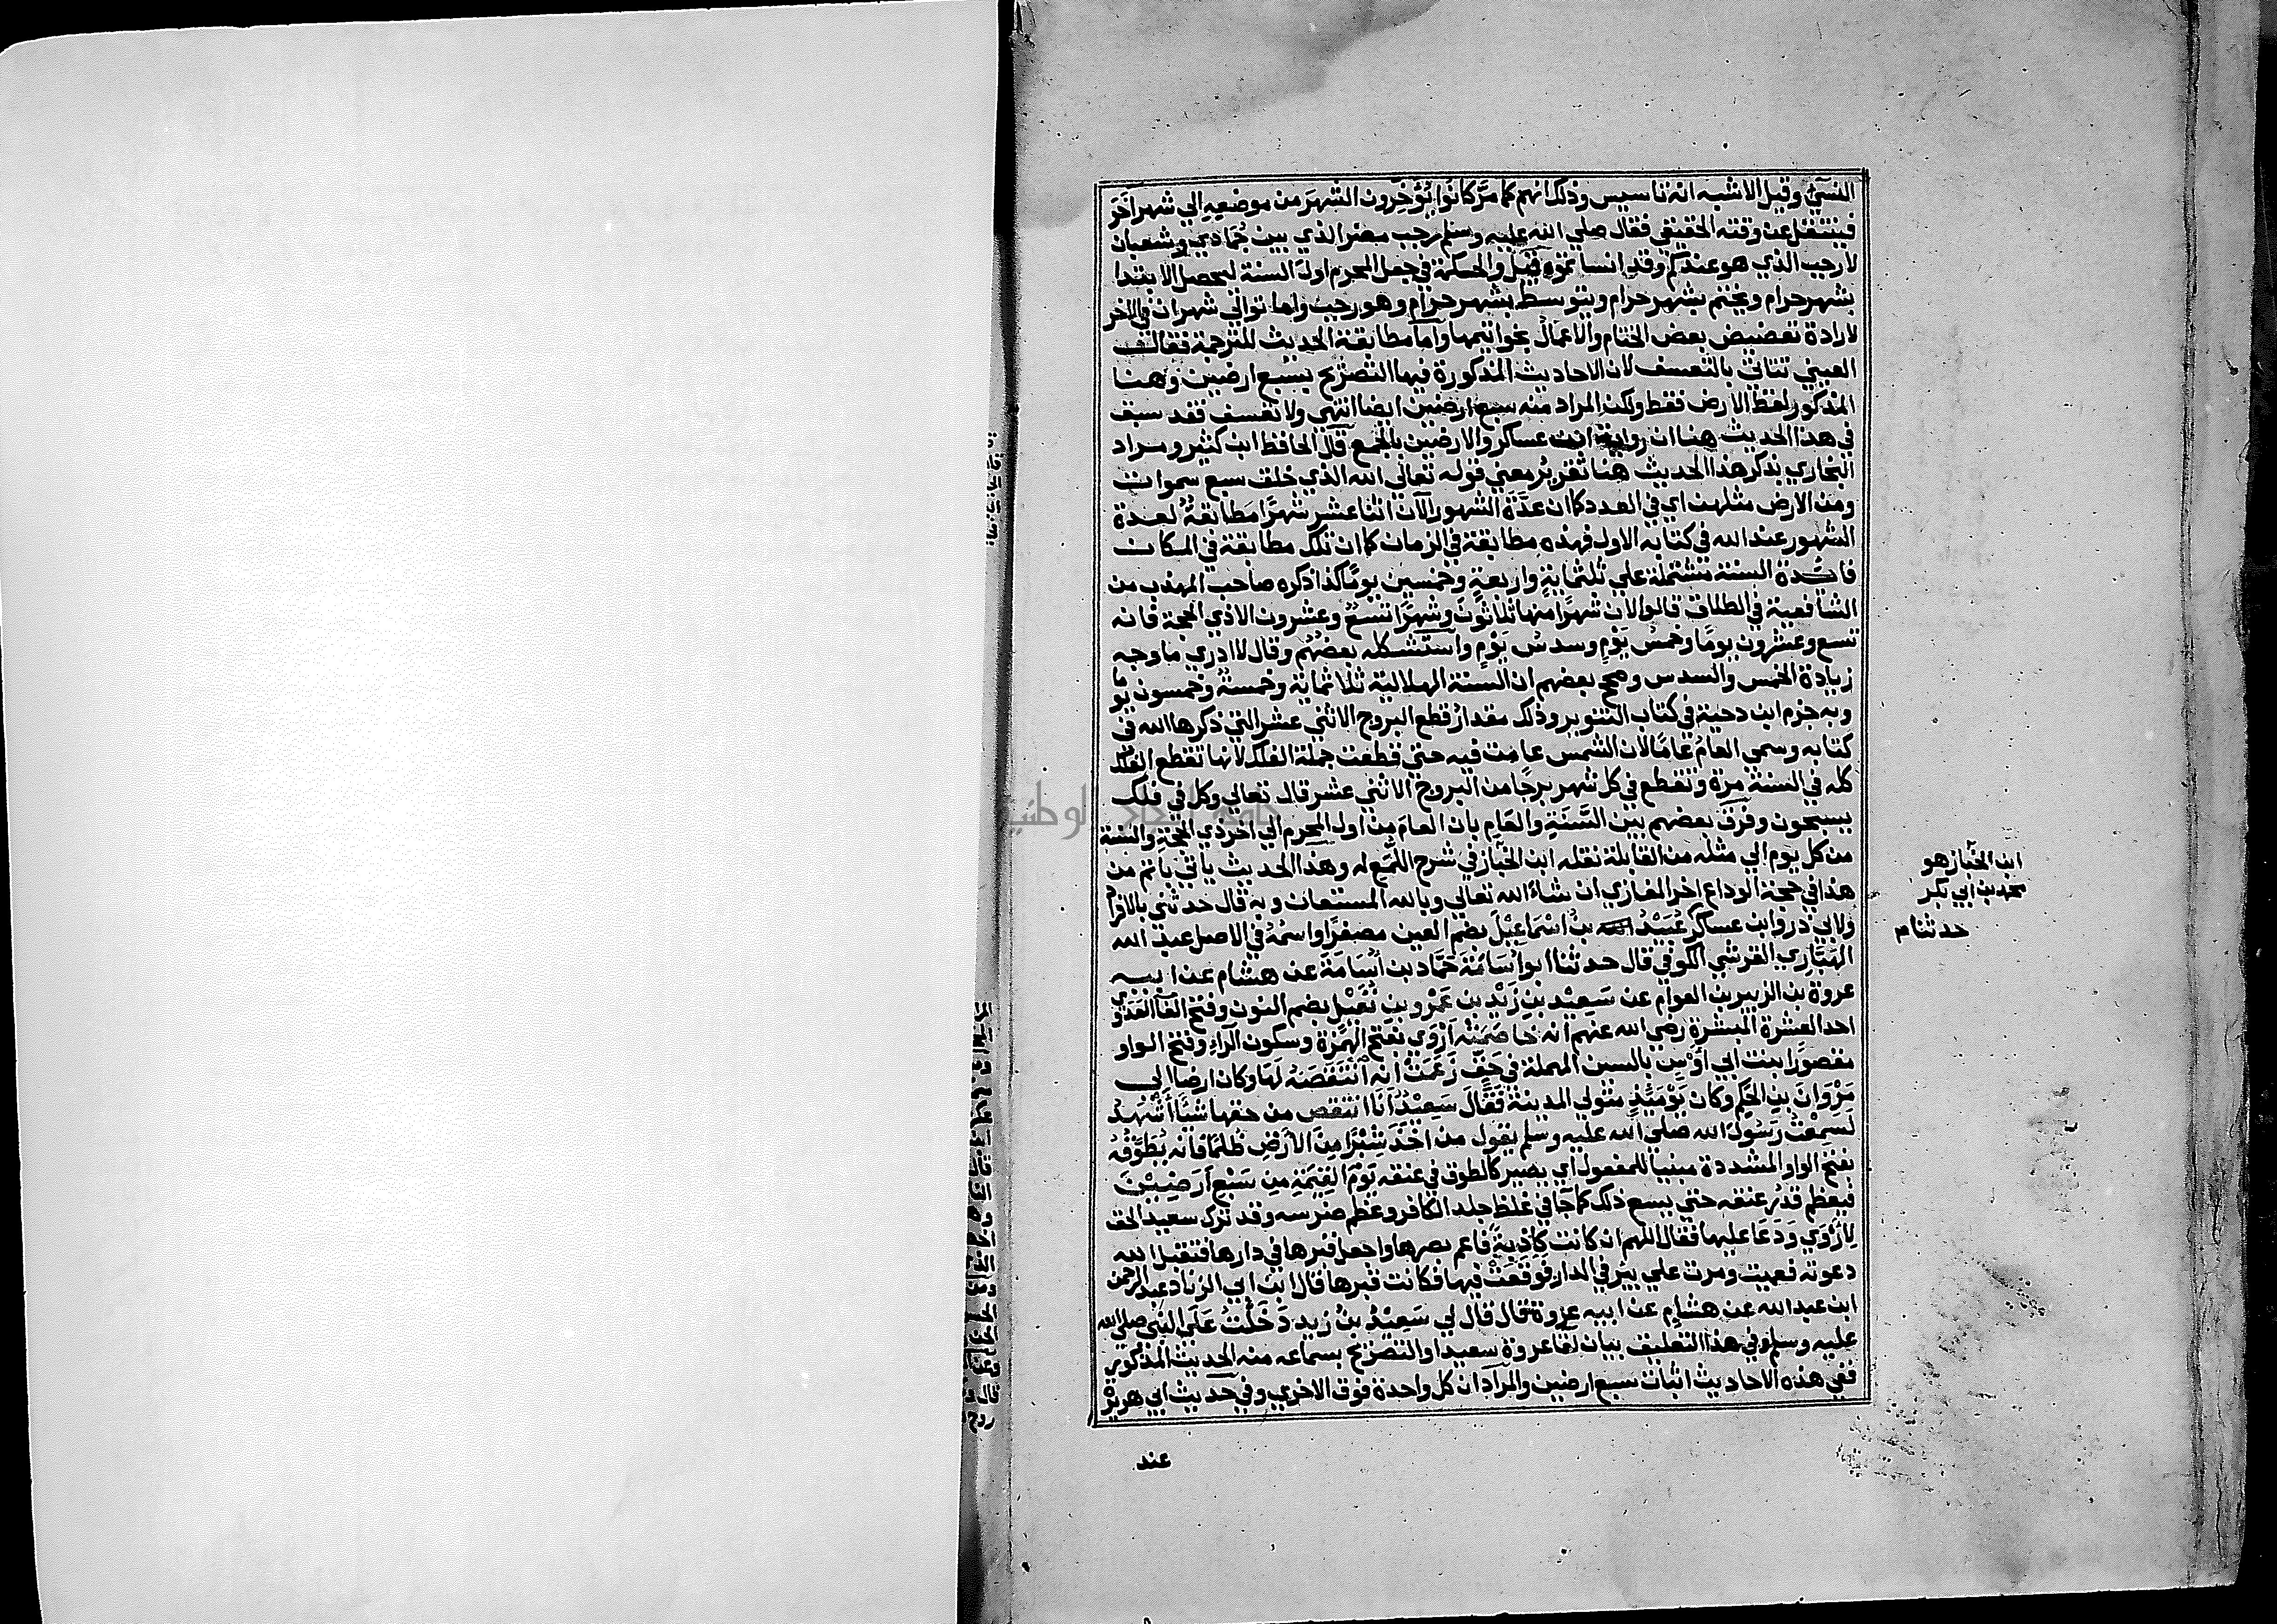 النسئ وقيل الاشبه انه تاسيس وذلك انهم كما مر كانوا يؤخرون الشهر من موضعه الي شهر اخر
فينتقل عن وقته الحقيقي فقال صلي الله عليه وسلم رجب مضر الذي بين جمادي وشعبان
لا رجب الذي هو عندكم وقد انساتموه قيل والحكمة في جعل المحرم اول السنة ليحصل الابتدا
بشهر حرام ويختم بشهر حرام ويتوسط بشهر حرام وهو رجب واما توالي شهران في الاخر
لارادة تفضيض بعض الختام والاعمال بخواتيمها واما مطابقة الحديث للترجمة فقال
العيني تتاتي بالتعسف لان الاحاديث المذكورة فيها التصريح بسبع ارضين وهنا
المذكور لفظ الارض فقط ولكن المراد منه سبع ارضين ايضا انتهي ولا تعسف فقد سبق
في هذا الحديث هنا ان رواية ابن عساكر والارضين بالجمع قال الحافظ ابن كثير ومراد
البخاري بذكر هذا الحديث هنا تقرير معني قوله تعالي الله الذي خلق سبع سموات
ومن الارض مثلهن اي في العدد كما ان عدة الشهور الآن اثنا عشر شهرا مطابقة لعدة
الشهور عند الله في كتابه الاول فهذه مطابقة في الزمان كما ان تلك مطابقة في المكان
فائدة السنة مشتملة علي ثلثماية واربعة وخمسين يوما كذا ذكره صاحب المهذب من
الشافعية في الطلاق قالوا لان شهرا منها ثلاثون وشهرا تسع وعشرون الا ذي الحجة فانه
تسع وعشرون يوما وخمس يوم وسدس يوم واستشكله بعضهم وقال لا ادري ما وجه
زيادة الخمس والسدس وصحح بعضهم ان السنة الهلالية ثلاثماية وخمسة وخمسون يوما
وبه جزم ابن دحية في كتاب التنوير وذلك مقدار قطع البروج الاثني عشر التي ذكرها الله في
كتابه وسمي العام عاما لان الشمس عامت فيه حتي قطعت جملة الفلك لانها تقطع الفلك
كله في السنة مرة وتقطع في كل شهر برجا من البروج الاثني عشر قال تعالي وكل في فلك
يسبحون وفرق بعضهم بين السنة والعام بان العام من اول المحرم الي اخر ذي الحجة والسنة
من كل يوم الي مثله من القابلة نقله ابن الخباز في شرح اللمع له وهذا الحديث ياتي باتم من
هذا في حجة الوداع اخر المغازي ان شاء الله تعالي وبالله المستعان وبه قال حدثني بالافراد
ولابي ذر وابن عساكر عبيد بن اسماعيل بضم العين مصغرا واسمه في الاصل عبد الله
الهباري القرشي الكوفي قال حدثنا ابو اسامة حماد بن اسامة عن هشام عن ابيه
عروة بن الزبير بن العوام عن سعيد بن زيد بن عمرو بن نفيل بضم النون وفتح الفا العدوي
احد العشرة المبشرة رضي الله عنهم انه خاصمته اروي بفتح الهمزة وسكون الراء وفتح الواو
مقصورا بنت ابي اوس بالسين المهملة في حق زعمت انه انتقصه لها وكان ارضا الي
مروان بن الحكم وكان يومئذ متولي المدينة فقال سعيد انا انتقص من حقها شئا اشهد
لسمعت رسول الله صلي الله عليه وسلم يقول من اخذ شبرا من الارض ظلما فانه يطوقه
بفتح الواو المشددة مبنيا للمفعول اي يصير كالطوق في عنقه يوم القيمة من سبع ارضين
فيعظم قدر عنقه حتي يسع ذلك كما جا في غلظ جلد الكافر وعظم ضرسه وقد ترك سعيد الحق
لاروي ودعا عليها فقال اللهم ان كانت كاذبة فاعم بصرها واجعل قبرها في دارها فتقبل الله
دعوته فعميت ومرت علي بير في الدار فوقعت فيها فكانت قبرها قال ابن ابي الزناد عبد الرحمن
ابن عبد الله عن هشام عن ابيه عروة قال قال لي سعيد بن زيد دخلت علي النبي صلي الله
عليه وسلم وفي هذا التعليق بيان لقا عروة سعيدا والتصريح بسماعه منه الحديث المذكور
ففي هذه الاحاديث اثبات سبع ارضين والمراد ان كل واحدة فوق الاخري وفي حديث ابي هريرة
عند
ابن الخباز هو
محمد بن ابي بكر
حدثنا م